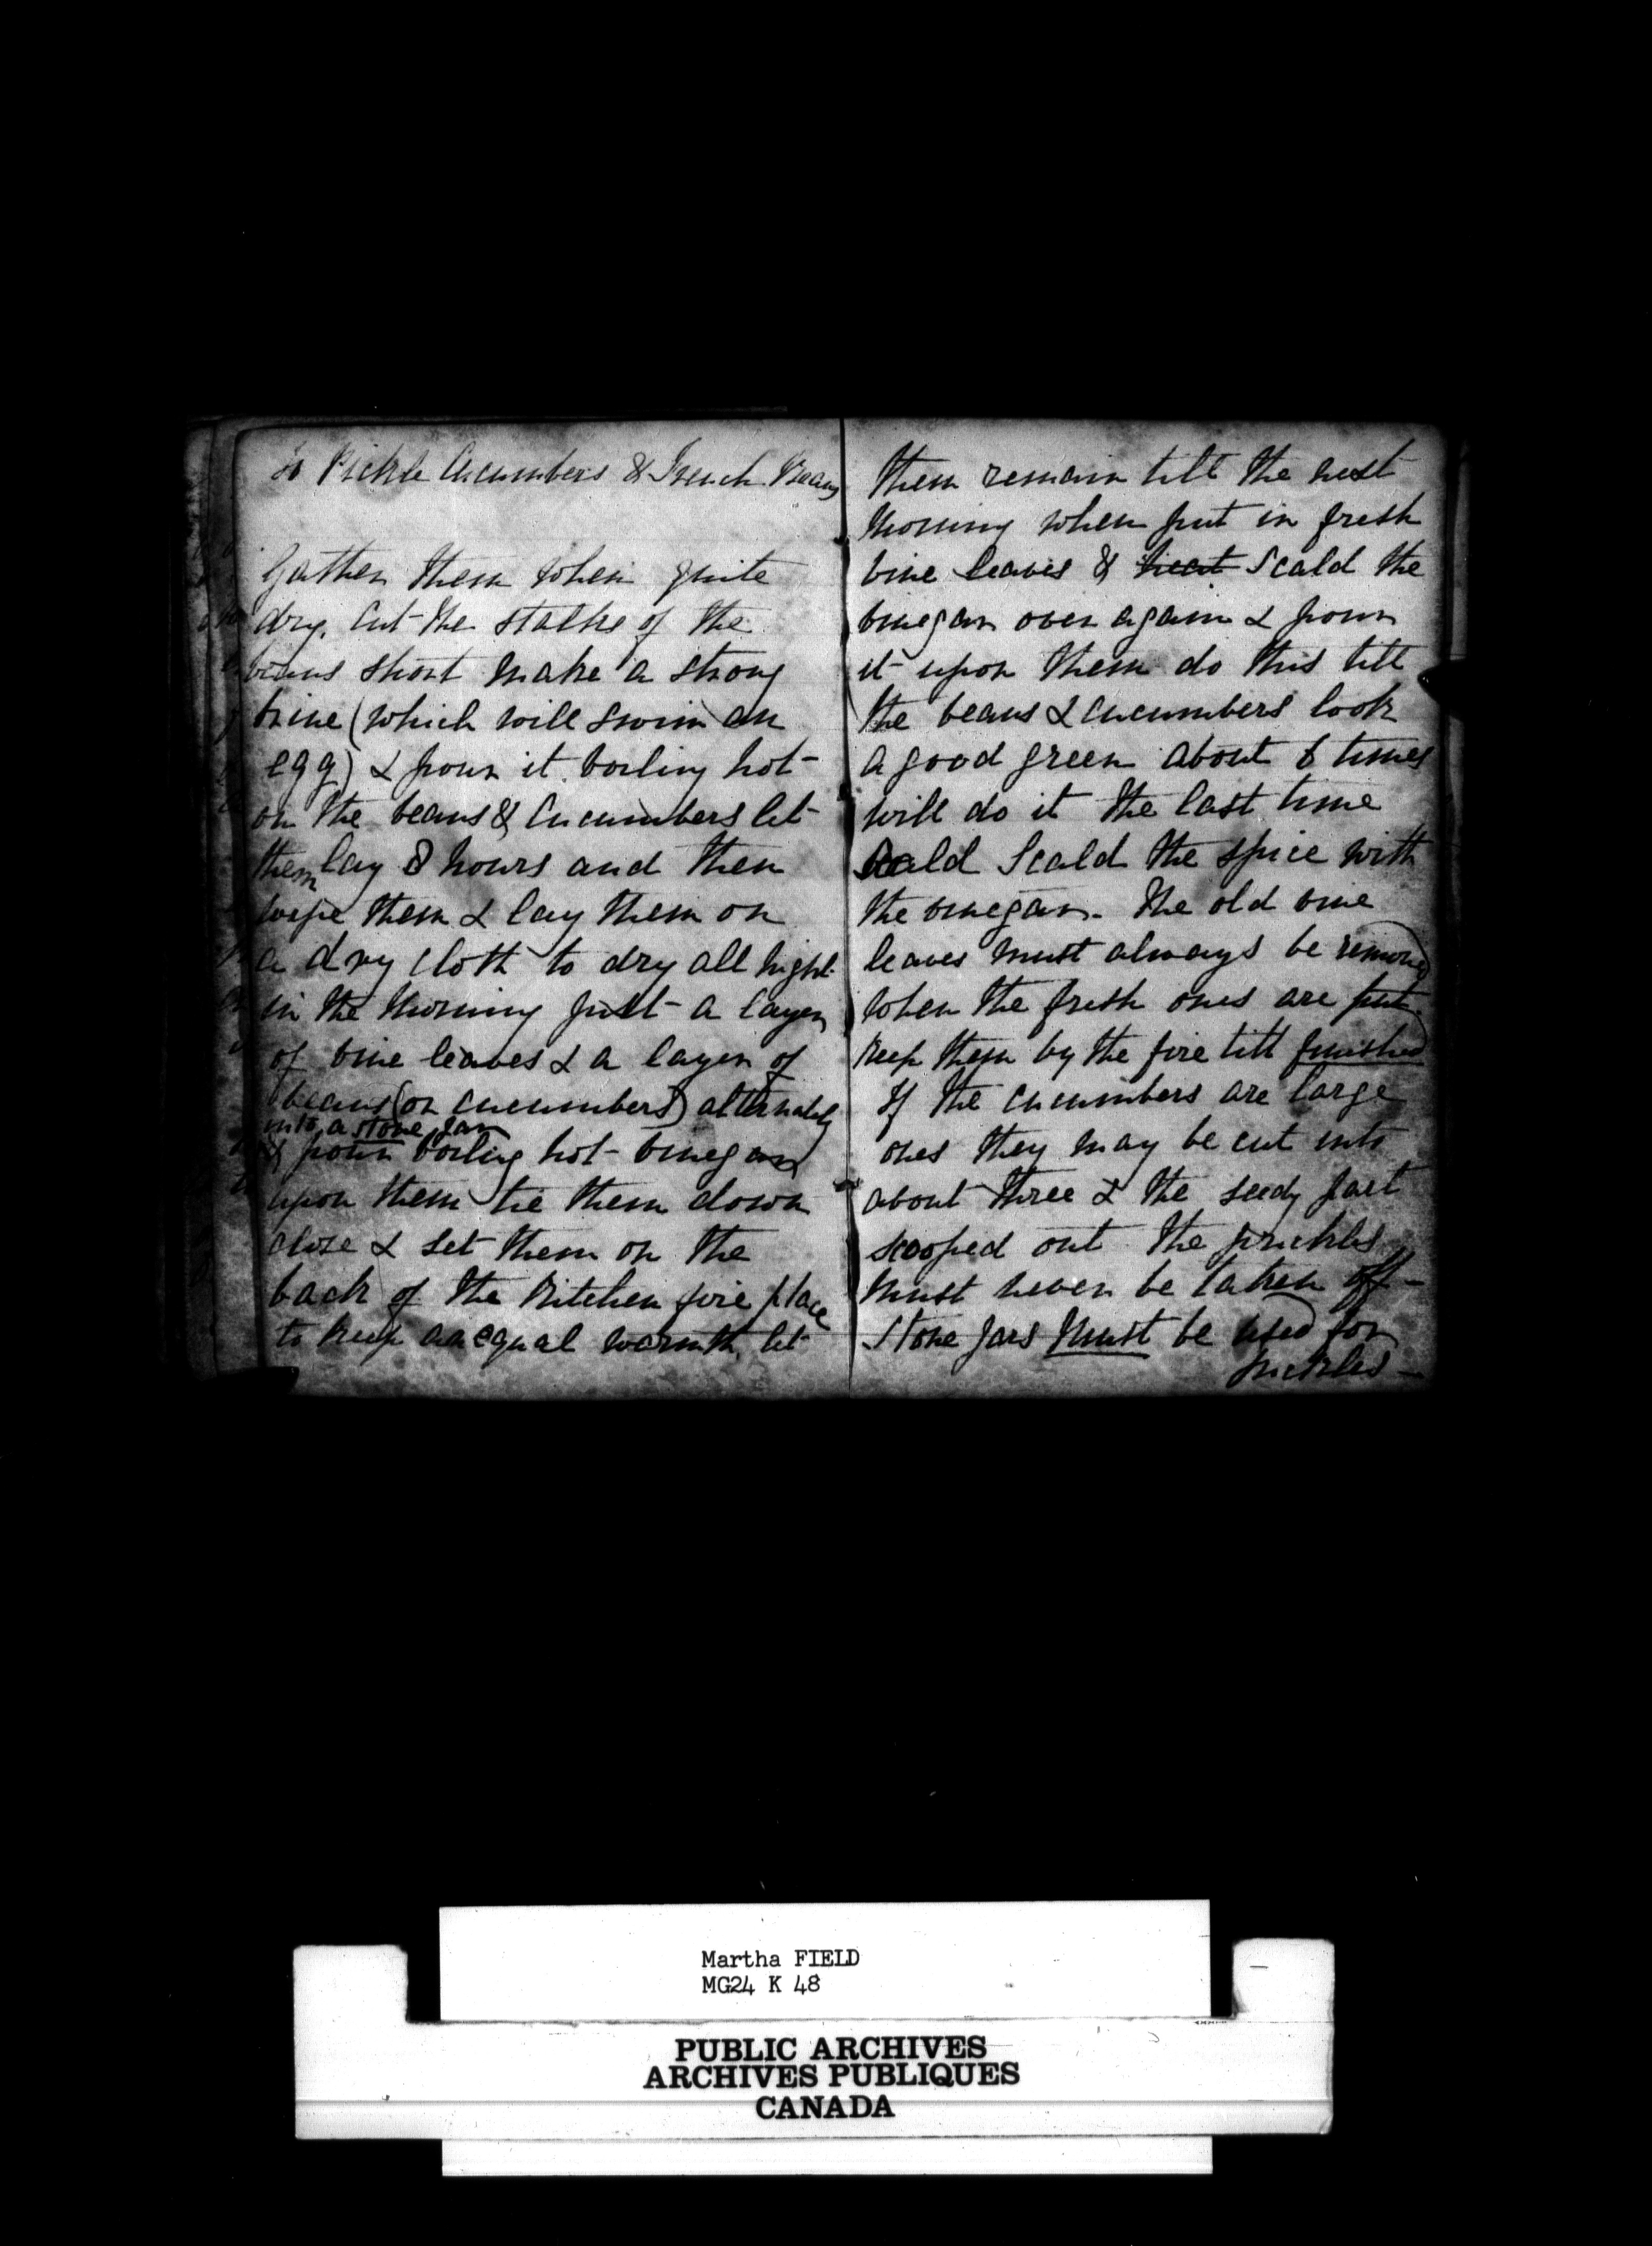 To Pickle Cucumbers & French Beans
Gather them when quite
dry. Cut the stalks of the
beans short make a strong
brine (which will swim an
egg) & pour it boiling hot
on the beans & Cucumbers let
them lay 8 hours and then
wipe them & lay them on
a dry cloth to dry all night
in the morning put a layer
of vine leaves & a layer of
beans (or cucumbers) alternately
into a stone jar
& pour boiling hot vinegar
upon them tie them down
close & set them on the
back of the Kitchen fire place
to keep an equal warmth. let
them remain till the next
morning when put in fresh
vine leaves & heat Scald the
vinegar over again & pour
it upon them do this till
the beans & cucumbers look
a good green about 6 times
will do it the last time
Scald Scald the spice with
the vinegar. The old vine
leaves must always be removed
when the fresh ones are put.
Keep them by the fire till finished
If the cucumbers are large
ones they may be cut into
about three & the seedy part
scooped out the prickles
must never be taken off -
Stone Jars must be used for
pickles -
Martha FIELD
MG24 K 48
PUBLIC ARCHIVES
ARCHIVES PUBLIQUES
CANADA